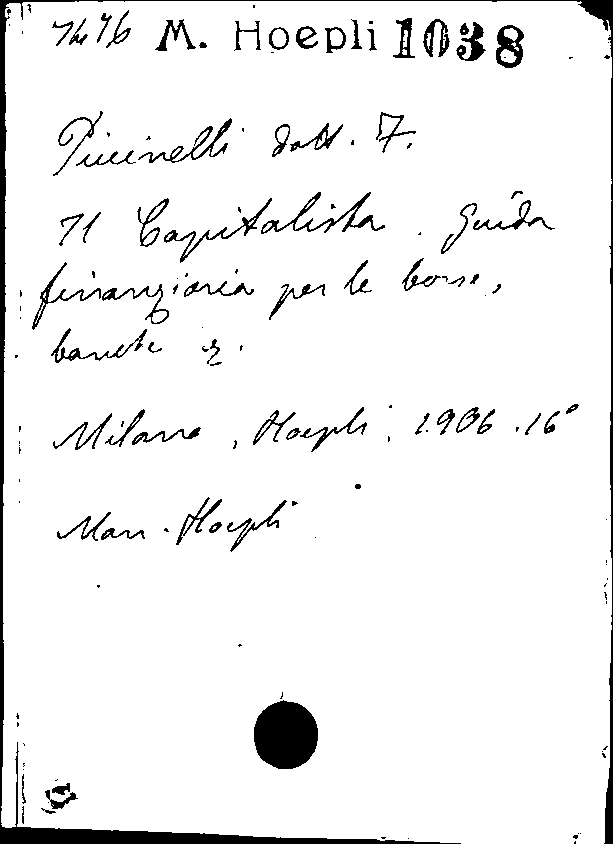 7476 M. Hoepli 1038
Piccinelli dott. F.
Il Capitalista. Guida
finanziaria per le borse,
banche &.
Milano, Hoepli, 1906. 16°
Man. Hoepli